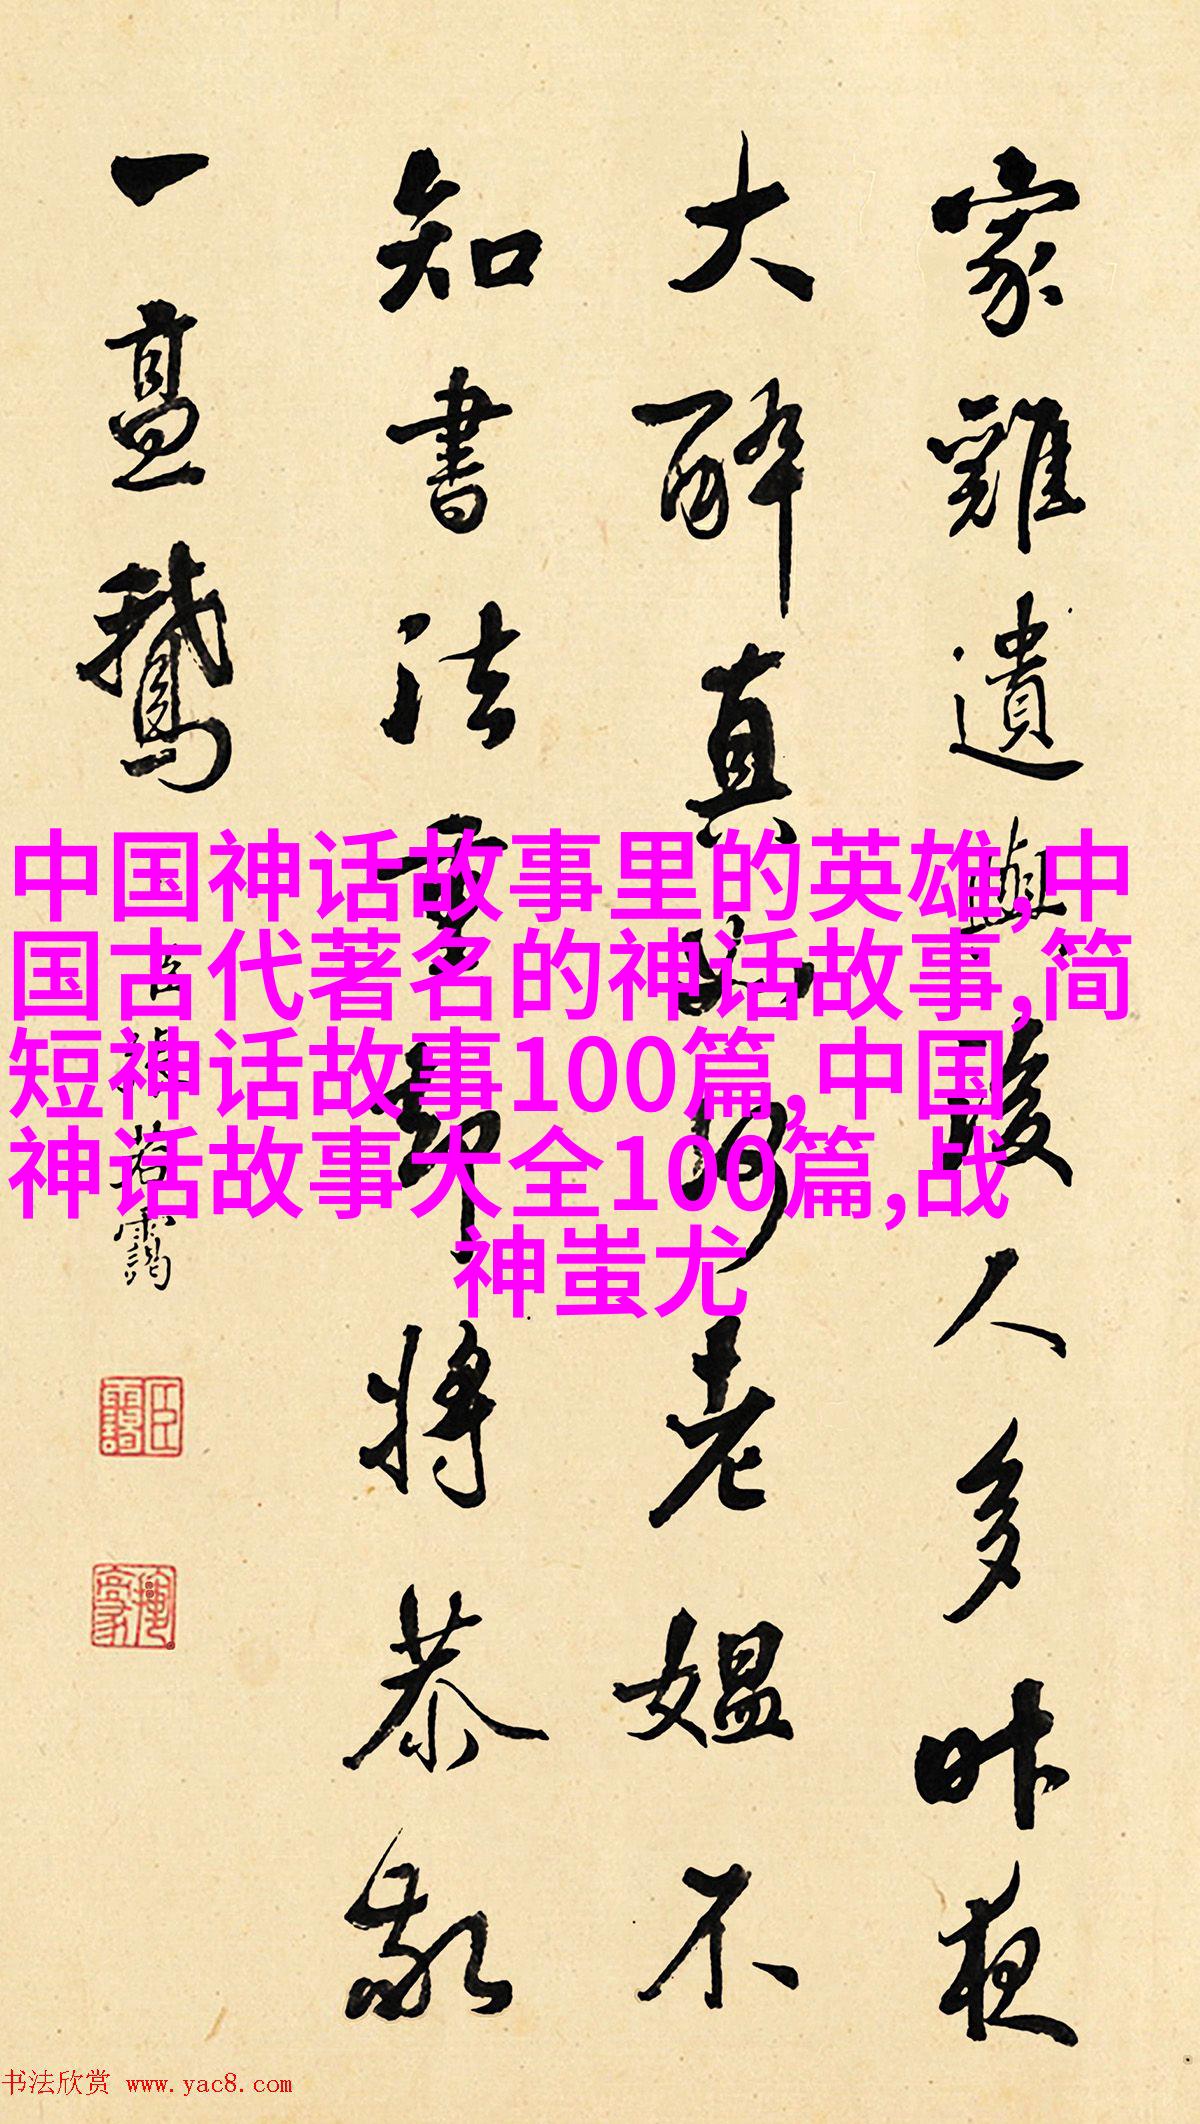 家雞遺人多昨夜
大醉真老媼不
知書法將恭敬
一鵝
臣張若靄
中国神话故事里的英雄,中
国古代著名的神话故事,简
短神话故事100篇,中国
神话故事大全100篇,战
神蚩尤
书法欣赏 www.yac8.com